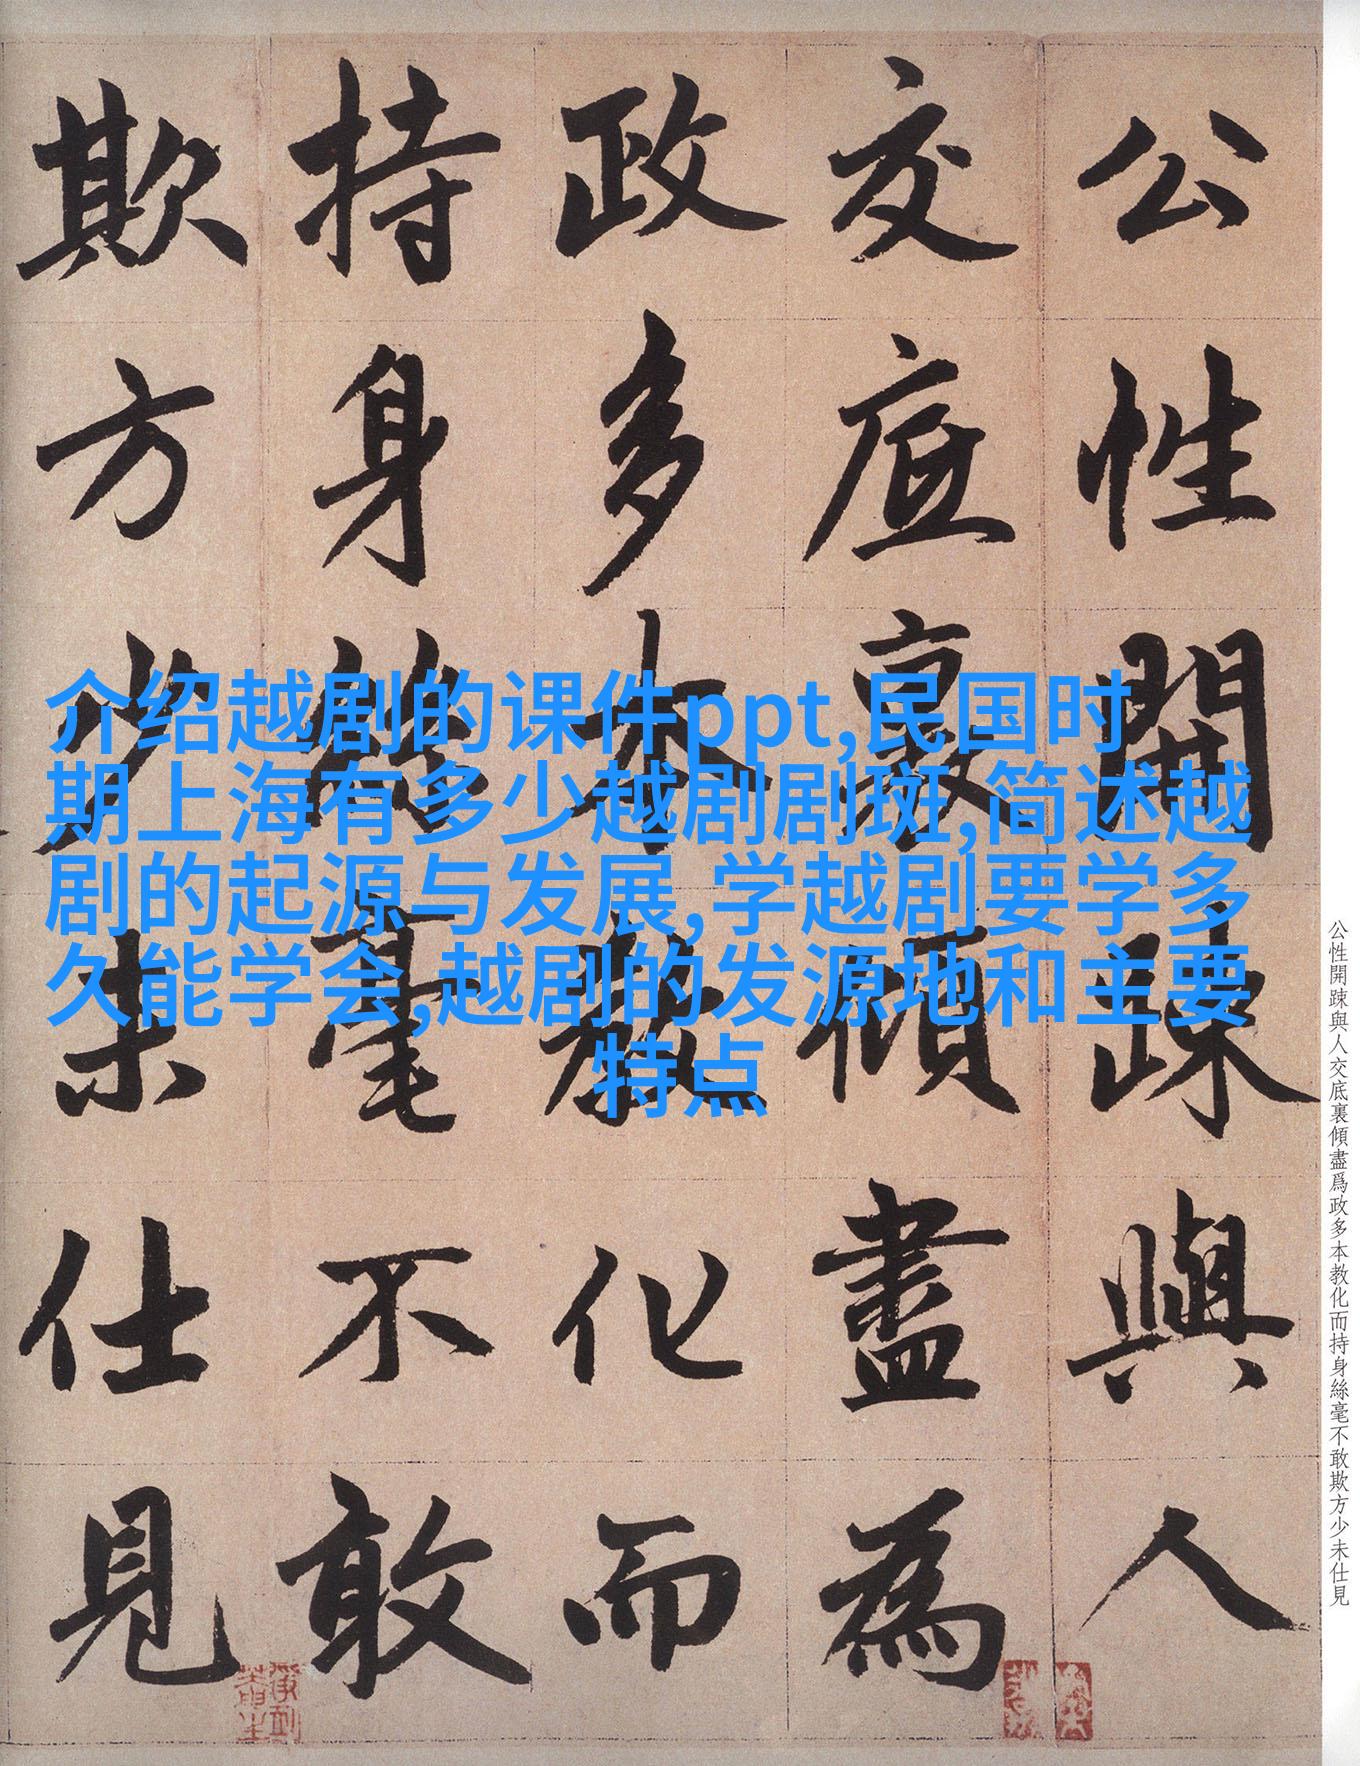 公性開踈與人
交底裏傾盡為
政多本教化而
持身絲毫不敢
欺方少未仕見
介绍越剧的课件ppt,民国时
期上海有多少越剧剧斑,简述越
剧的起源与发展,学越剧要学多
久能学会,越剧的发源地和主要
特点
公性開踈與人交底裏傾盡爲政多本教化而持身絲毫不敢欺方少未仕見